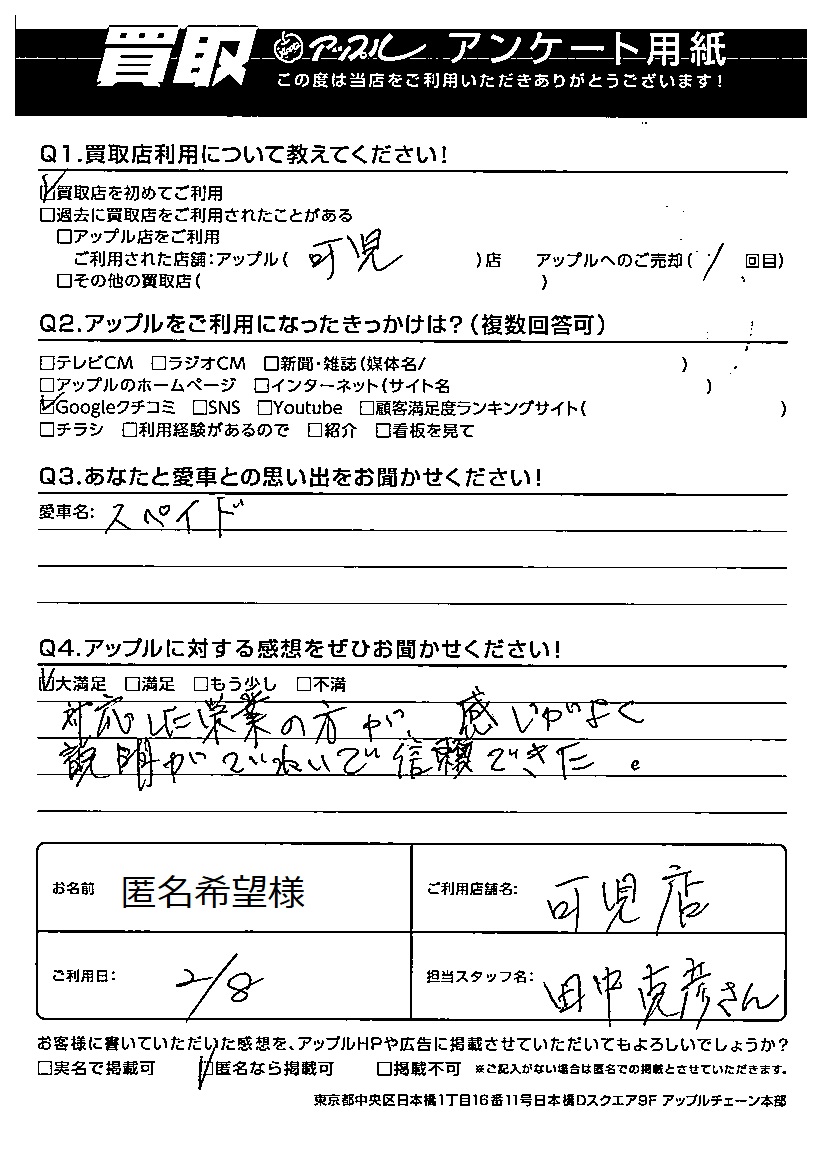 買取 アップル アンケート用紙
この度は当店をご利用いただきありがとうございます!
Q1.買取店利用について教えてください!
☑買取店を初めてご利用
□過去に買取店をご利用されたことがある
□アップル店をご利用
ご利用された店舗:アップル( 可児 )店 アップルへのご売却( 1 回目)
□その他の買取店( )
Q2.アップルをご利用になったきっかけは?(複数回答可)
□テレビCM □ラジオCM □新聞・雑誌(媒体名/ )
□アップルのホームページ □インターネット(サイト名 )
☑Googleクチコミ □SNS □Youtube □顧客満足度ランキングサイト( )
□チラシ □利用経験があるので □紹介 □看板を見て
Q3.あなたと愛車との思い出をお聞かせください!
愛車名: スペイド
Q4.アップルに対する感想をぜひお聞かせください!
☑大満足 □満足 □もう少し □不満
対応した営業の方が、感じがよく
説明がていねいで信頼できた。
お名前 匿名希望様
ご利用店舗名: 可児店
ご利用日: 2/8
担当スタッフ名: 田中克彦さん
お客様に書いていただいた感想を、アップルHPや広告に掲載させていただいてもよろしいでしょうか?
□実名で掲載可 ☑匿名なら掲載可 □掲載不可 ※ご記入がない場合は匿名での掲載とさせていただきます。
東京都中央区日本橋1丁目16番11号日本橋Dスクエア9F アップルチェーン本部